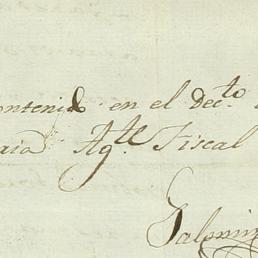 ontenido en el dec.to
Ag.te Fiscal
Palomin